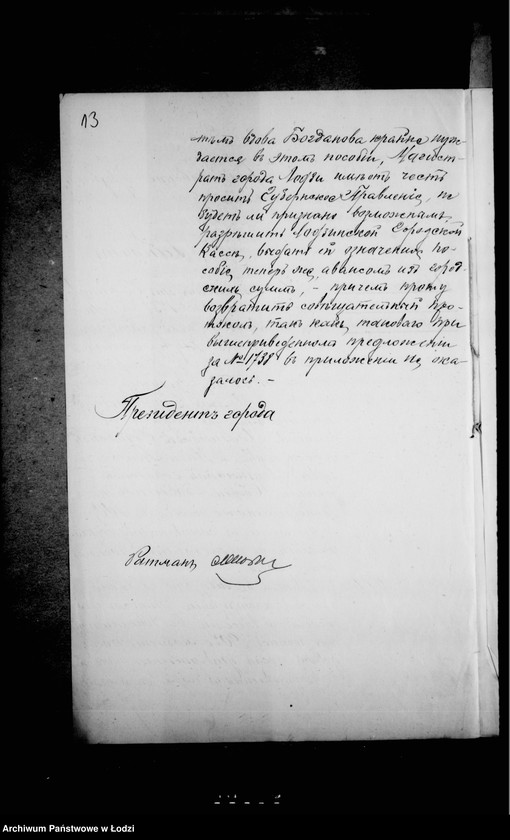 13
тѣмъ вдова Богданова крайне нуж-
дается въ этомъ пособіи, Магист-
ратъ города Лодзи имѣетъ честь
просить Губернское Правленіе, не
будетъ ли признано возможнымъ
разрѣшить Лодзинской Городской
Кассѣ, выдать ей означенное по-
собіе теперь же, авансомъ изъ город-
скихъ суммъ, – причемъ прошу
возвратить совѣщательный про-
токолъ, такъ какъ таковаго при
вышеприведенномъ предложеніи
за № 1738 въ приложеніи не ока-
залось. –
Президентъ города
Ратманъ
Archiwum Państwowe w Łodzi